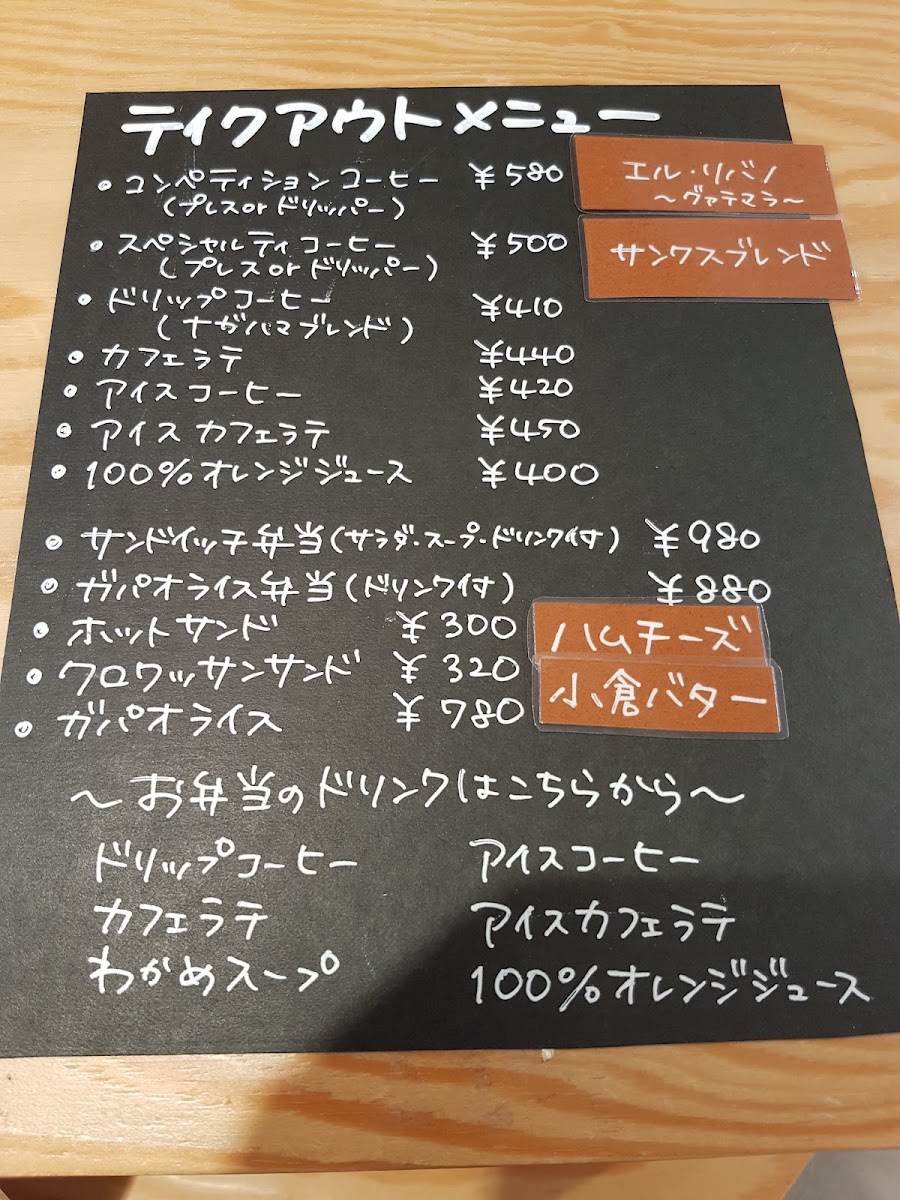 テイクアウトメニュー
• コンペティションコーヒー ¥580 エル・リバノ
(プレスor ドリッパー) ～グァテマラ～
• スペシャルティコーヒー ¥500 サンクスブレンド
(プレスor ドリッパー)
• ドリップコーヒー ¥410
(ナガハマブレンド)
• カフェラテ ¥440
• アイスコーヒー ¥420
• アイスカフェラテ ¥450
• 100%オレンジジュース ¥400
• サンドイッチ弁当(サラダ・スープ・ドリンク付) ¥980
• ガパオライス弁当(ドリンク付) ¥880
• ホットサンド ¥300 ハムチーズ
• クロワッサンサンド ¥320 小倉バター
• ガパオライス ¥780
～お弁当のドリンクはこちらから～
ドリップコーヒー アイスコーヒー
カフェラテ アイスカフェラテ
わかめスープ 100%オレンジジュース